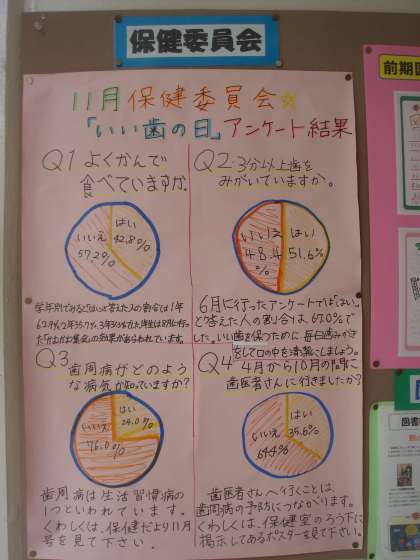 保健委員会
11月保健委員会☆
「いい歯の日」アンケート結果
Q1 よくかんで
食べていますか。
はい
42.8%
いいえ
57.2%
Q2.3分以上歯を
みがいていますか。
はい
51.6%
いいえ
48.4
%
6月に行ったアンケートでは「はい」
と答えた人の割合は67.0%で
した。いい歯を保つために毎日歯みがき
をして口の中を清潔にしましょう。
Q3
歯周病がどのよう
な病気か知っていますか?
はい
24.0%
いいえ
76.0%
歯周病は生活習慣病の
1つといわれています。
くわしくは、保健だより11月
号を見て下さい。
Q4
4月から10月の間に
歯医者さんに行きましたか?
はい
35.6%
いいえ
64.4%
歯医者さんへ行くことは、
歯周病の予防につながります。
くわしくは、保健室のろう下に
掲示してあるポスターを見て下さい。
前期
図書